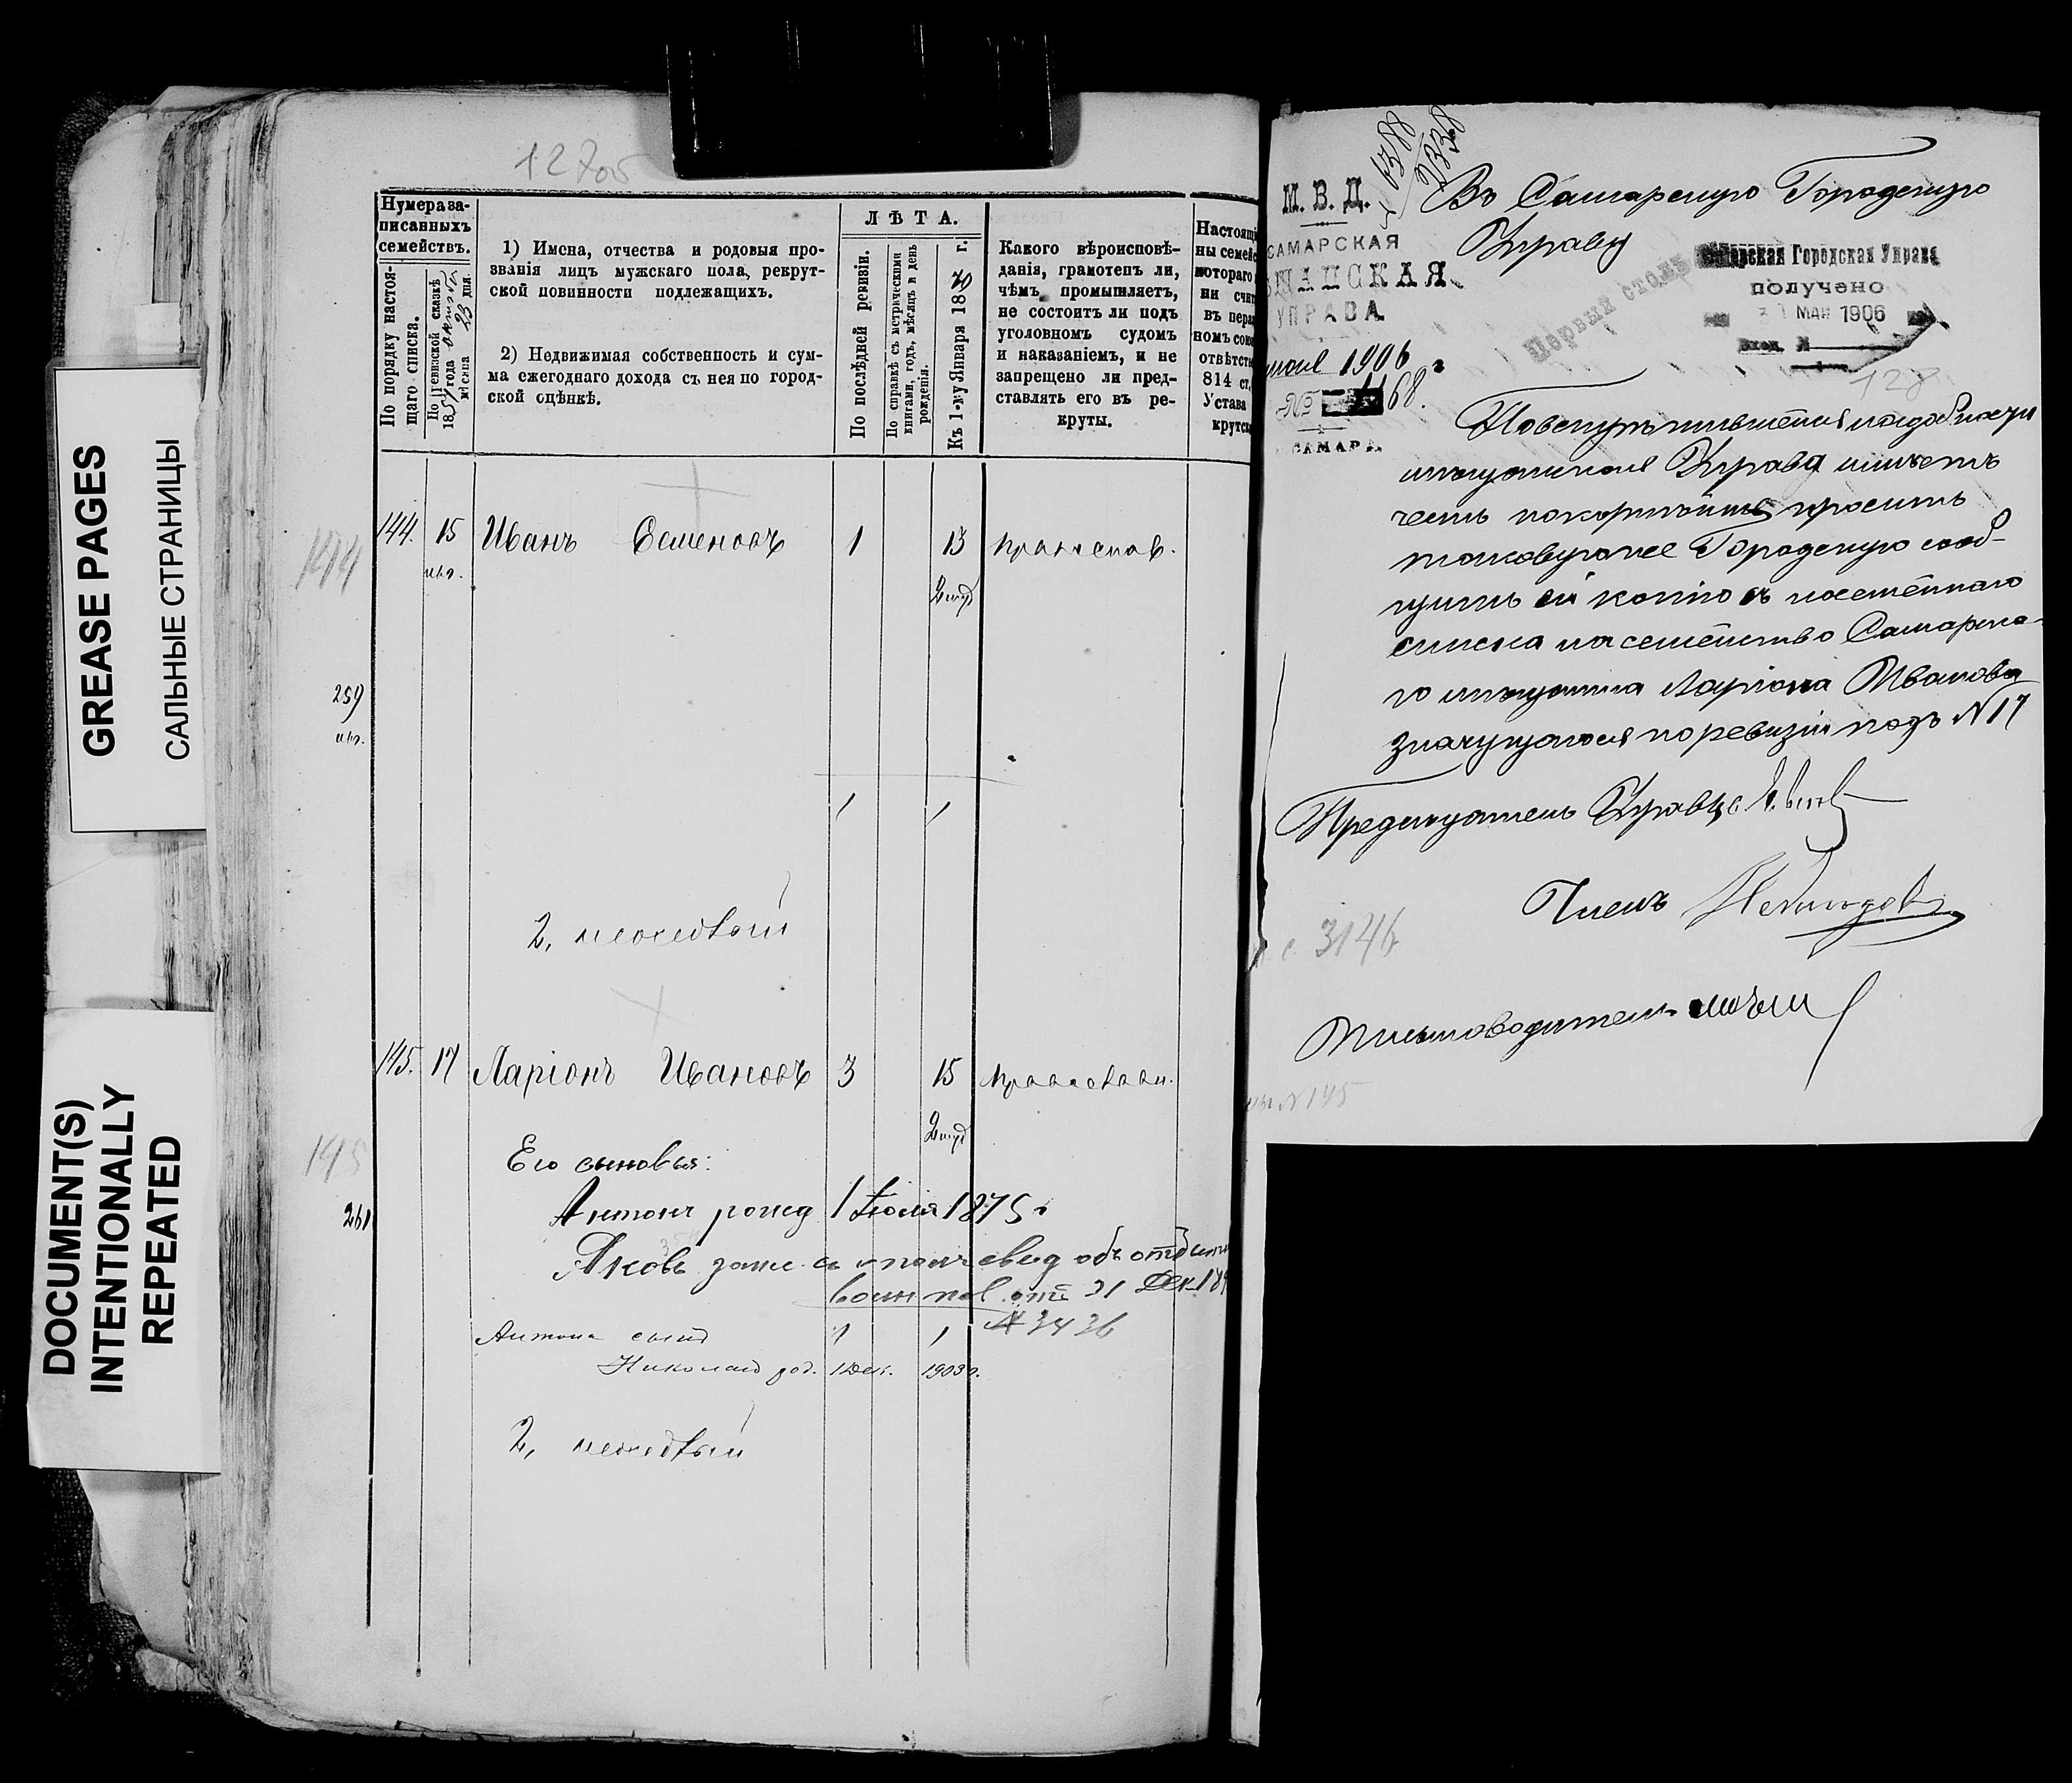 GREASE PAGES
САЛЬНЫЕ СТРАНИЦЫ
DOCUMENT(S)
INTENTIONALLY
REPEATED
127об
Нумера за-
писанныхъ
семействъ.
По порядку настоя-
щаго списка.
По ревизской сказкѣ
1857 года октября
мѣсяца 23 дня.
1) Имена, отчества и родовыя про-
званія лицъ мужскаго пола, рекрут-
ской повинности подлежащихъ.
2) Недвижимая собственность и сум-
ма ежегоднаго дохода съ нея по город-
ской оцѣнкѣ.
ЛѢТА.
По послѣдней ревизіи.
По справкѣ съ метрическими
книгами, годъ, мѣсяцъ и день
рожденія.
Къ 1-му Января 1870 г.
Какого вѣроисповѣ-
данія, грамотенъ ли,
чѣмъ промышляетъ,
не состоитъ ли подъ
уголовномъ судомъ
и наказаніемъ, и не
запрещено ли пред-
ставлять его въ ре-
круты.
Настоящ
ны семей
котораго
ни счи
въ пера
номъ сою
отвѣтст
814 ст.
Устава
крутск
144
144. 15 Иванъ Семеновъ 1 13 православ.
259
1 1
2, неимѣетъ
145. 17 Ларіонъ Ивановъ 3 15 православн.
145
Его сыновья:
261
Антонъ рожд 1 Іюля 1875 г
Яковъ
воин пов. отъ 31 Дек 189
№ 3436
Антона сынъ 1 1
Николай род. 1 Дек. 1903 г.
2, неимѣетъ
6388
7338
М. В. Д.
САМАРСКАЯ
ѢЩАНСКАЯ
УПРАВА
мая 1906 г
№ 1168.
САМАРА.
Въ Самарскую Городскую
Управу
Первый столъ
Самарская Городская Управа
получено
1 МАЙ 1906
Вход. №
128
По встрѣтившейся надобности
мѣщанская Управа имѣетъ
честь покорнѣйше просить
таковую же Городскую сооб-
щить ей копію съ посемейнаго
списка на семейство Самарска-
го мѣщанина Ларіона Иванова
значущагося по ревизіи подъ № 17
Предсѣдатель Управы
Членъ
с. 3146
Письмоводитель
№ 145